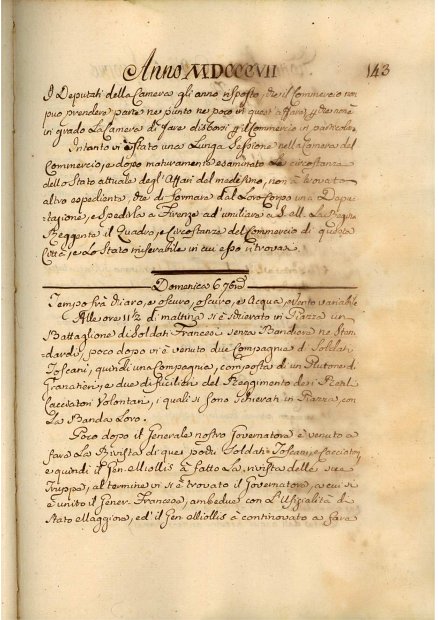 Anno MDCCCVII 143
I Deputati della Camera gli anno risposto, che il Commercio non
puo prendere parte ne punto ne poco in quest'affare, e che non è
in grado La Camera di fare discorsi p il Commercio in particolare
Intanto vi è stato una Lunga Sessione nella Camera del
Commercio, e dopo maturamente esaminato Le circostanze
dello Stato attuale degl'Affari del medesimo, non à trovato
altro espediente, che di formare dal Loro Corpo una Depu-
tazione, e spedirla a Firenze ad'umiliare a S. M. La Regina
Reggente il Quadro, e Circostanze del Commercio di questa
Città, e Lo Stato miserabile in cui esso ritrovasi
Domenica 6 7bre
Tempo frà chiaro, e oscuro, oscuro, e Acqua, Vento variabile
Alle ore 11½ di mattina si è schierato in Piazza un
Battaglione di Soldati Francesi senza Bandiera ne Sten-
dardo, poco dopo vi è venuto due Compagnie di Soldati
Toscani, quindi una Compagnia, composta di un Plutone di
Granatieri, e due di Fucilieri del Reggimento dei Reali
Cacciatori Volontari, i quali si sono schierati in Piazza, con
La Banda Loro.
Poco dopo il Generale nostro Governatore è venuto a
fare La Rivista di que pochi Soldati Toscani, e Cacciatori
e quindi il Gen. Miollis à fatto La rivista delle sue
Truppe, al termine vi si è trovato il Governatore, a cui si
è unito il Gener. Francese, ambedue con L'Ufizialità di
Stato Maggiore, ed'il Gen. Miollis à continovato a fare